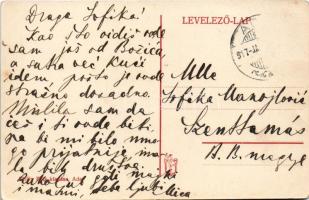 Draga Sofika!
Kao što vidiš ovde
sam još od Božića,
a sutra već kući
idem, pošto je ovde
strašno dosadno.
Mislila sam da
ćeš i ti ovde biti,
pa bi mi bilo mno-
go prijatnije, ma-
lo bilo društva.
majki
i mami, tebe ljubi
LEVELEZŐ-LAP
Mlle
Sofika Manojlović
Szenttamás
B. B. megye